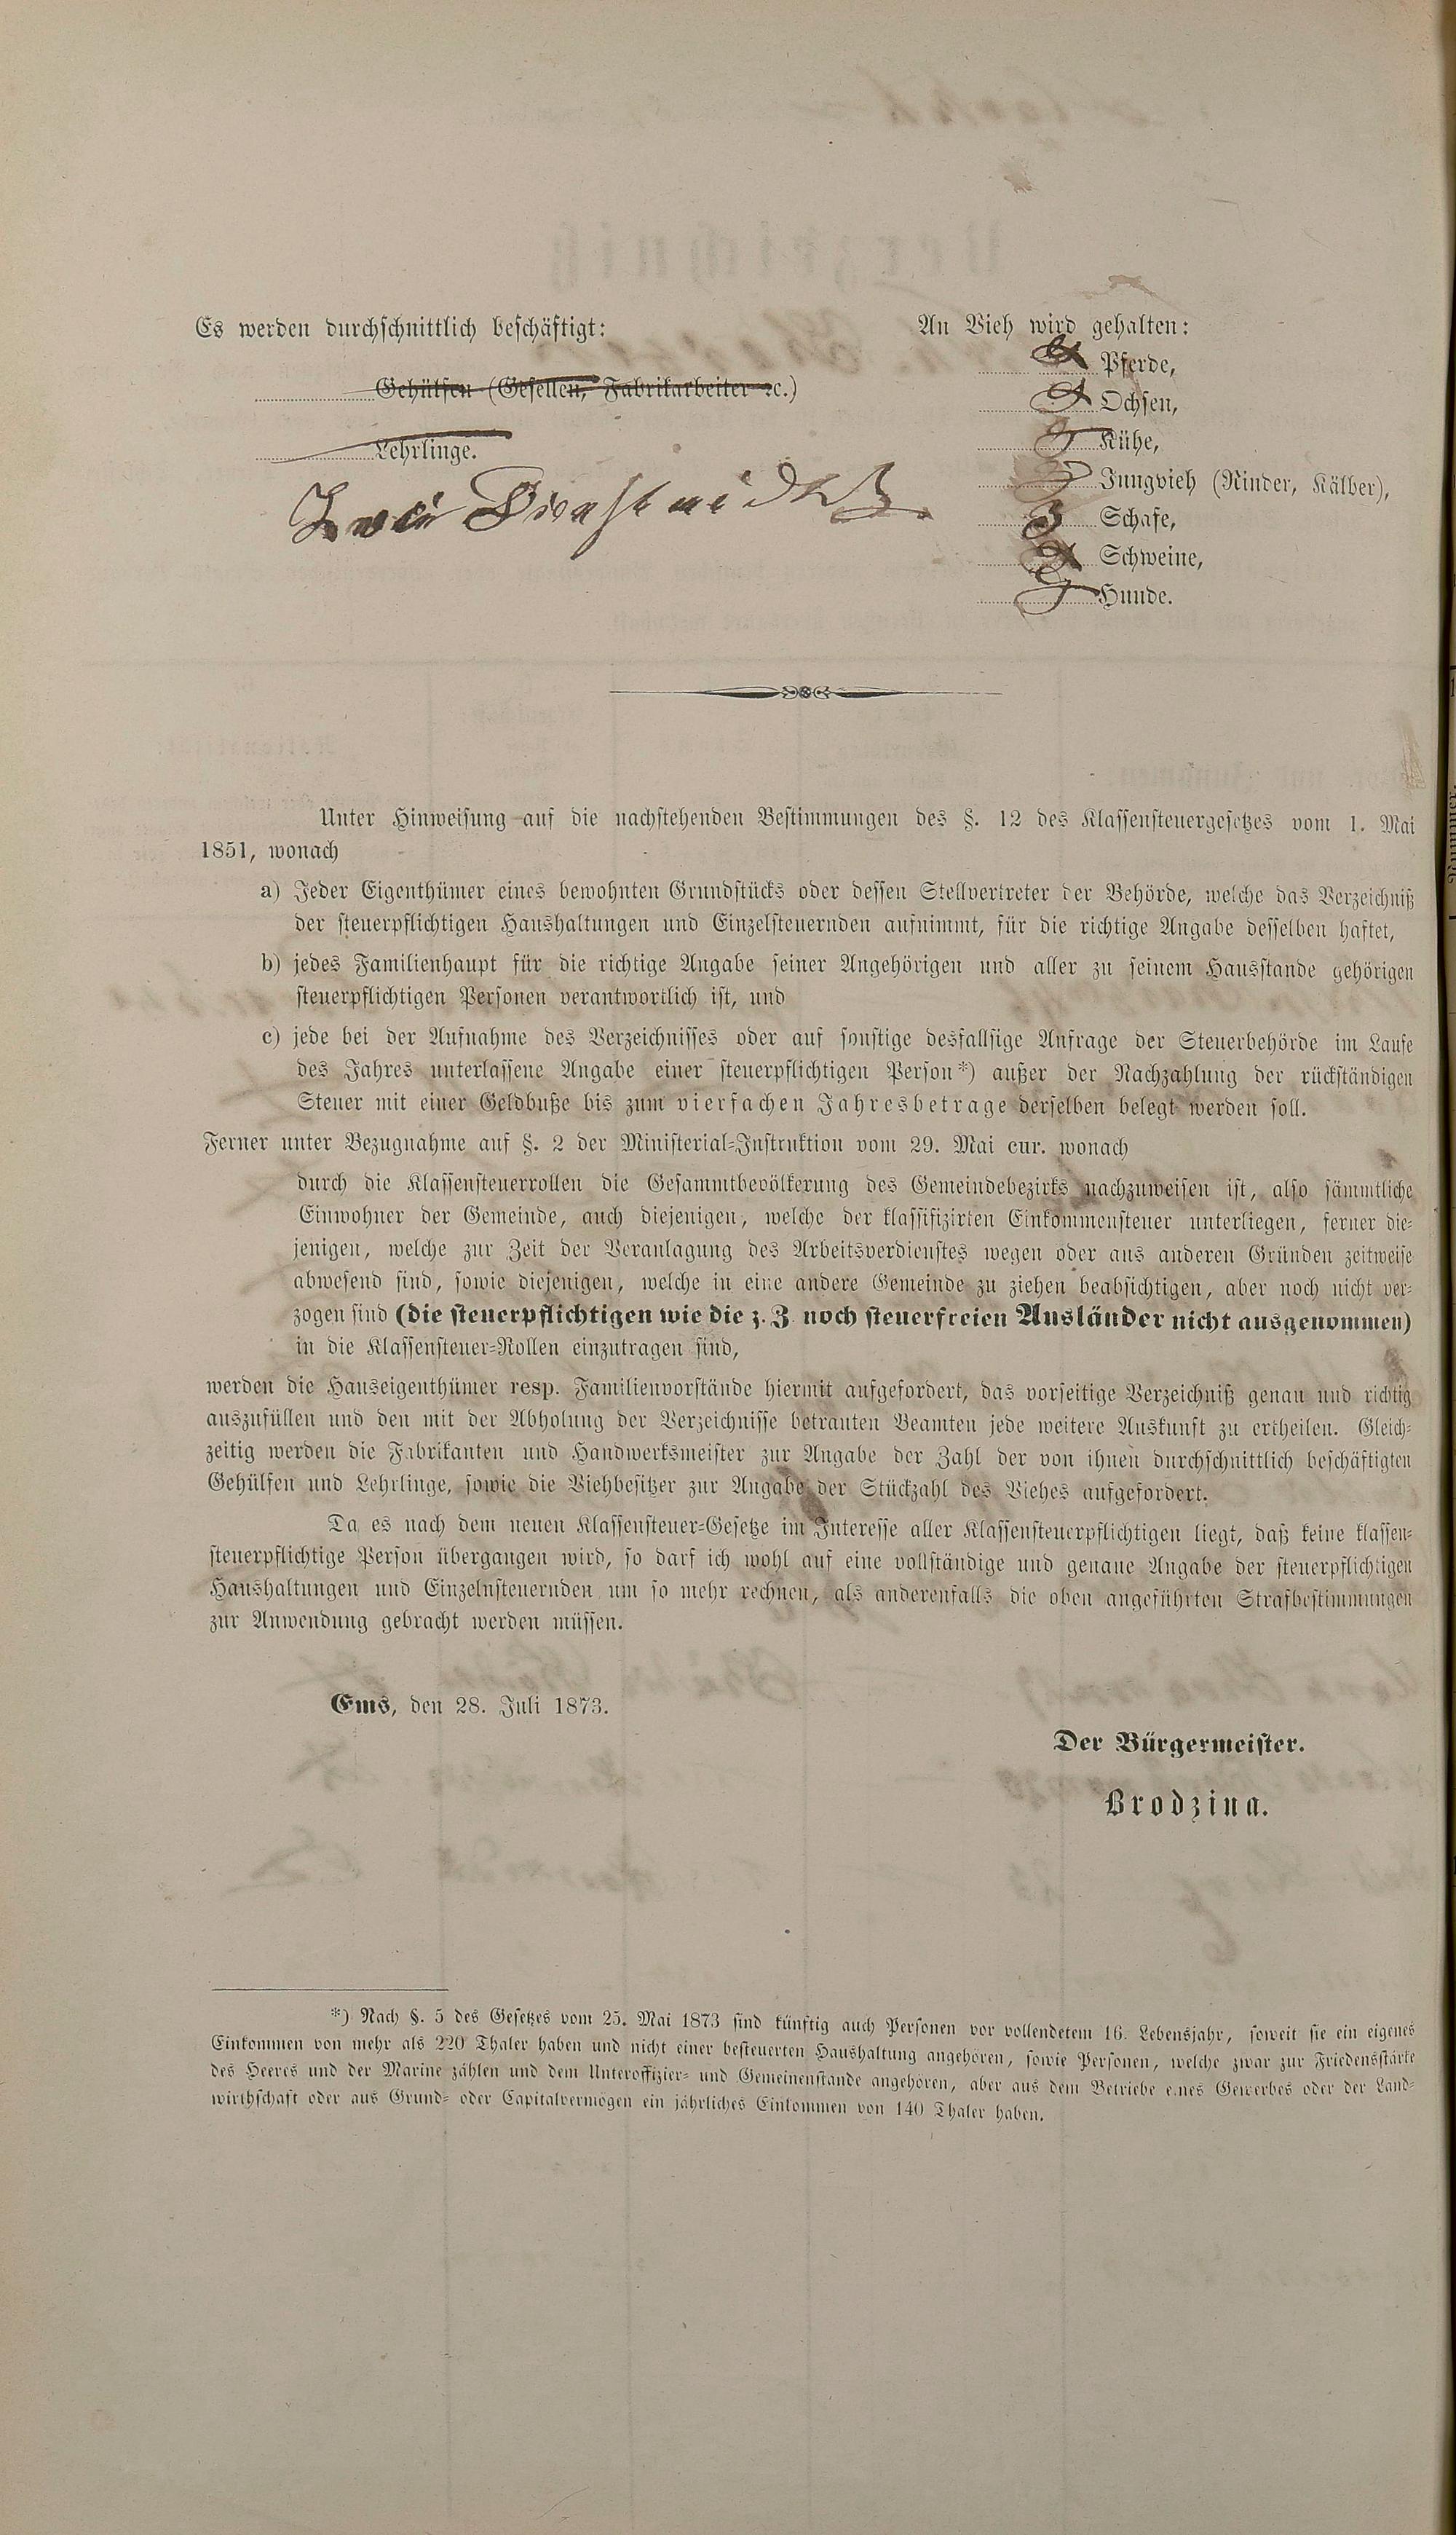 Es werden durchschnittlich beschäftigt:
Gehülfen (Gesellen, Fabrikarbeiter ꝛc.)
Lehrlinge.
Zwei
An Vieh wird gehalten:
Pferde,
Ochsen,
Kühe,
Jungvieh (Rinder, Kälber),
Schafe,
Schweine,
Hunde.
Unter Hinweisung auf die nachstehenden Bestimmungen des §. 12 des Klassensteuergesetzes vom 1. Mai
1851, wonach
a) Jeder Eigenthümer eines bewohnten Grundstücks oder dessen Stellvertreter der Behörde, welche das Verzeichniß
der steuerpflichtigen Haushaltungen und Einzelsteuernden aufnimmt, für die richtige Angabe desselben haftet,
b) jedes Familienhaupt für die richtige Angabe seiner Angehörigen und aller zu seinem Hausstande gehörigen
steuerpflichtigen Personen verantwortlich ist, und
c) jede bei der Aufnahme des Verzeichnisses oder auf sonstige desfallsige Anfrage der Steuerbehörde im Laufe
des Jahres unterlassene Angabe einer steuerpflichtigen Person*) außer der Nachzahlung der rückständigen
Steuer mit einer Geldbuße bis zum vierfachen Jahresbetrage derselben belegt werden soll.
Ferner unter Bezugnahme auf §. 2 der Ministerial-Instruktion vom 29. Mai cur. wonach
durch die Klassensteuerrollen die Gesammtbevölkerung des Gemeindebezirks nachzuweisen ist, also sämmtliche
Einwohner der Gemeinde, auch diejenigen, welche der klassifizirten Einkommensteuer unterliegen, ferner die-
jenigen, welche zur Zeit der Veranlagung des Arbeitsverdienstes wegen oder aus anderen Gründen zeitweise
abwesend sind, sowie diejenigen, welche in eine andere Gemeinde zu ziehen beabsichtigen, aber noch nicht ver-
zogen sind (die steuerpflichtigen wie die z. Z. noch steuerfreien Ausländer nicht ausgenommen)
in die Klassensteuer-Rollen einzutragen sind,
werden die Hauseigenthümer resp. Familienvorstände hiermit aufgefordert, das vorseitige Verzeichniß genau und richtig
auszufüllen und den mit der Abholung der Verzeichnisse betrauten Beamten jede weitere Auskunft zu ertheilen. Gleich-
zeitig werden die Fabrikanten und Handwerksmeister zur Angabe der Zahl der von ihnen durchschnittlich beschäftigten
Gehülfen und Lehrlinge, sowie die Viehbesitzer zur Angabe der Stückzahl des Viehes aufgefordert.
Da es nach dem neuen Klassensteuer-Gesetze im Interesse aller Klassensteuerpflichtigen liegt, daß keine klassen-
steuerpflichtige Person übergangen wird, so darf ich wohl auf eine vollständige und genaue Angabe der steuerpflichtigen
Haushaltungen und Einzelnsteuernden um so mehr rechnen, als anderenfalls die oben angeführten Strafbestimmungen
zur Anwendung gebracht werden müssen.
Ems, den 28. Juli 1873.
Der Bürgermeister.
Brodzina.
*) Nach §. 5 des Gesetzes vom 25. Mai 1873 sind künftig auch Personen vor vollendetem 16. Lebensjahr, soweit sie ein eigenes
Einkommen von mehr als 220 Thaler haben und nicht einer besteuerten Haushaltung angehören, sowie Personen, welche zwar zur Friedensstärke
des Heeres und der Marine zählen und dem Unteroffizier- und Gemeinenstande angehören, aber aus dem Betriebe eines Gewerbes oder der Land-
wirthschaft oder aus Grund- oder Capitalvermögen ein jährliches Einkommen von 140 Thaler haben.